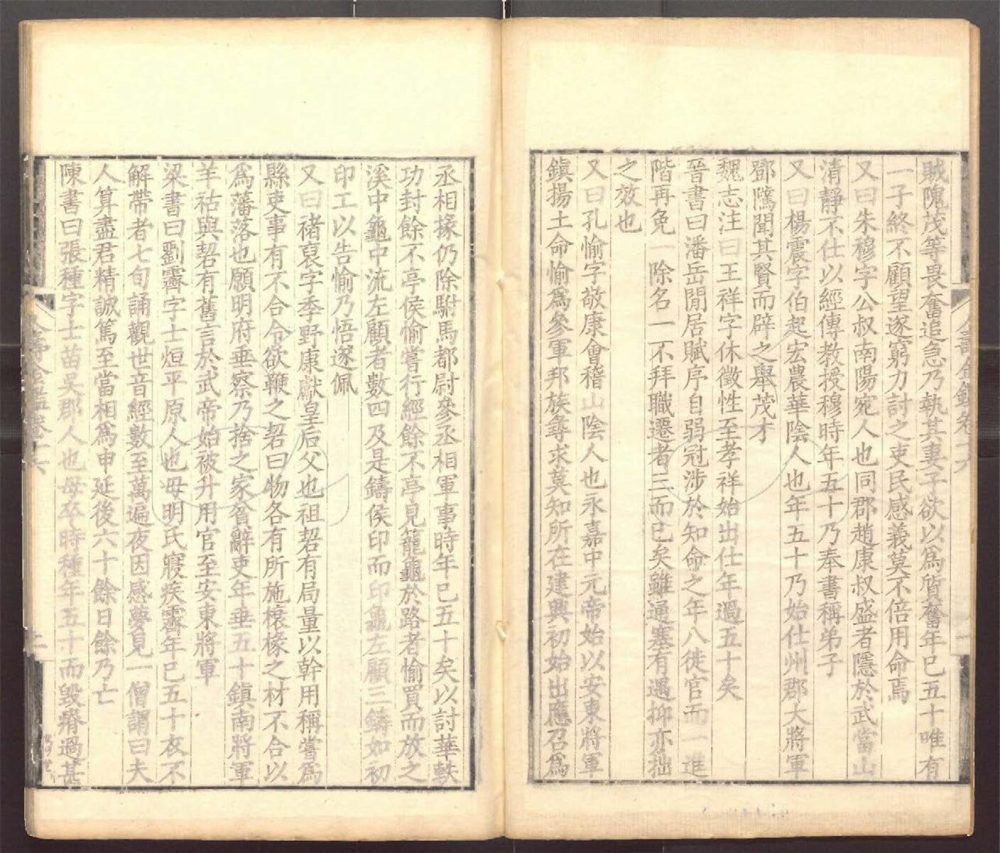 賊隗茂等畏奮追急乃執其妻子欲以為質奮年已五十唯有
一子終不顧望遂窮力討之吏民感義莫不倍用命焉
又曰朱穆字公叔南陽宛人也同郡趙康叔盛者隱於武當山
清靜不仕以經傳教授穆時年五十乃奉書稱弟子
又曰楊震字伯起宏農華陰人也年五十乃始仕州郡大將軍
鄧隲聞其賢而辟之舉茂才
魏志注曰王祥字休徵性至孝祥始出仕年過五十矣
晉書曰潘岳閒居賦序自弱冠涉於知命之年八徙官而一進
階再免一除名一不拜職遷者三而已矣雖通塞有遇抑亦拙
之效也
又曰孔愉字敬康會稽山陰人也永嘉中元帝始以安東將軍
鎮揚土命愉為參軍邦族尋求莫知所在建興初始出應召為
丞相掾仍除駙馬都尉參丞相軍事時年已五十矣以討華軼
功封餘不亭侯愉嘗行經餘不亭見籠龜於路者愉買而放之
溪中龜中流左顧者數四及是鑄侯印而印龜左顧三鑄如初
印工以告愉乃悟遂佩
又曰褚裒字季野康獻皇后父也祖䂮有局量以幹用稱嘗為
縣吏事有不合令欲鞭之䂮曰物各有所施榱椽之材不合以
為藩落也願明府垂察乃捨之家貧辭吏年垂五十鎮南將軍
羊祜與䂮有舊言於武帝始被升用官至安東將軍
梁書曰劉霽字士烜平原人也母明氏寢疾霽年已五十衣不
解帶者七旬誦觀世音經數至萬遍夜因感夢見一僧謂曰夫
人算盡君精誠篤至當相為申延後六十餘日餘乃亡
陳書曰張種字士苗吳郡人也母卒時種年五十而毀瘠過甚